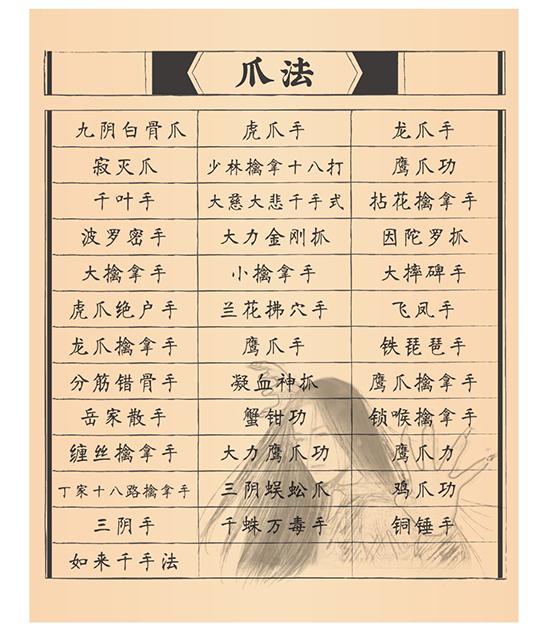 爪法
九阴白骨爪 虎爪手 龙爪手
寂灭爪 少林擒拿十八打 鹰爪功
千叶手 大慈大悲千手式 拈花擒拿手
波罗密手 大力金刚抓 因陀罗抓
大擒拿手 小擒拿手 大摔碑手
虎爪绝户手 兰花拂穴手 飞凤手
龙爪擒拿手 鹰爪手 铁琵琶手
分筋错骨手 凝血神抓 鹰爪擒拿手
岳家散手 蟹钳功 锁喉擒拿手
缠丝擒拿手 大力鹰爪功 鹰爪力
丁家十八路擒拿手 三阴蜈蚣爪 鸡爪功
三阴手 千蛛万毒手 铜锤手
如来千手法